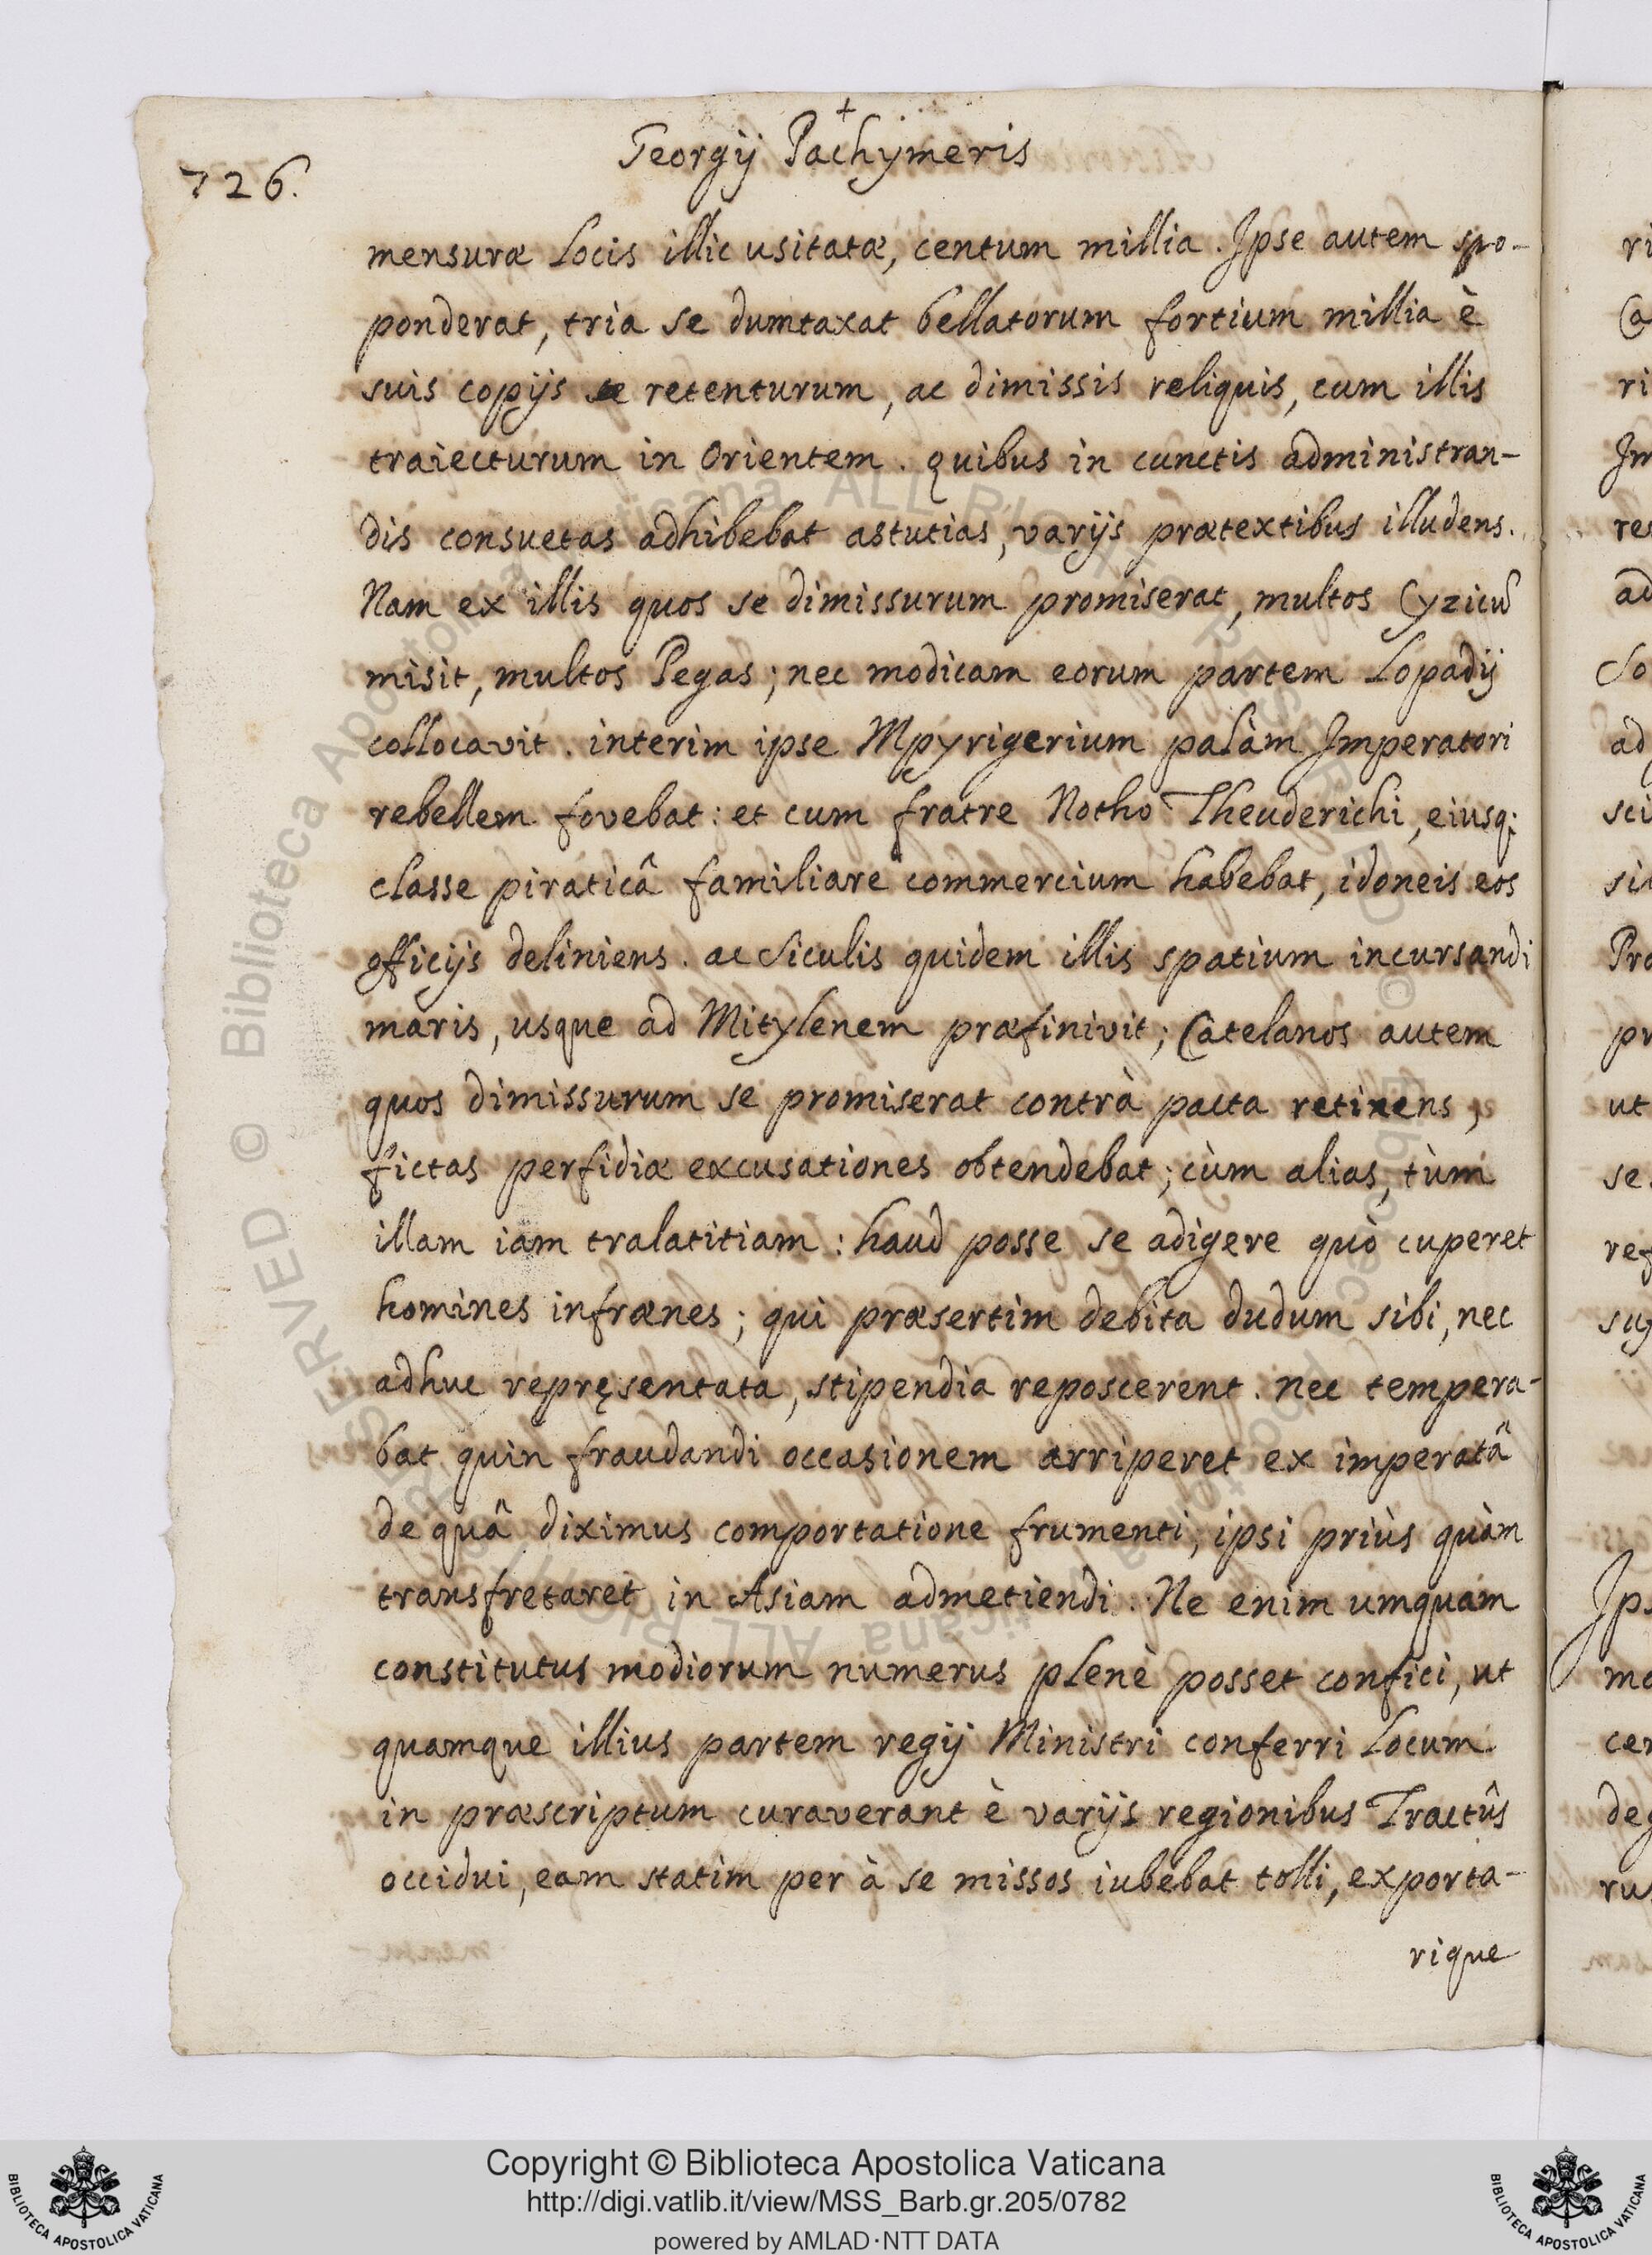 +
Georgij Pachymeris
726.
mensuræ Locis illic usitatæ, centum millia. Ipse autem spo-
ponderat, tria se dumtaxat bellatorum fortium millia è
suis copijs retenturum, ac dimissis reliquis, cum illis
traiecturum in Orientem. quibus in cunctis administran-
dis consuetas adhibebat astutias, varijs prætextibus illudens.
Nam ex illis quos se dimissurum promiserat, multos Cyzicū
misit, multos Pegas; nec modicam eorum partem Lopadij
collocavit. interim ipse Mpyrigerium palàm Imperatori
rebellem fovebat: et cum fratre Notho Theuderichi, eiusq;
classe piraticâ familiare commercium habebat, idoneis eos
officijs deliniens. ac Siculis quidem illis spatium incursandi
maris, usque ad Mitylenem præfinivit; Catelanos autem
quos dimissurum se promiserat contrà pacta retinens,
fictas perfidiæ excusationes obtendebat; cùm alias, tùm
illam iam tralatitiam: haud posse se adigere quò cuperet
homines infrænes; qui præsertim debita dudum sibi, nec
adhuc repręsentata, stipendia reposcerent. nec tempera-
bat quin fraudandi occasionem arriperet ex imperatâ
de quâ diximus comportatione frumenti, ipsi priùs quàm
transfretaret in Asiam admetiendi. Ne enim umquam
constitutus modiorum numerus plenè posset confici, ut
quamque illius partem regij Ministri conferri Locum
in præscriptum curaverant è varijs regionibus Tractûs
occidui, eam statim per à se missos iubebat tolli, exporta-
rique
Copyright © Biblioteca Apostolica Vaticana
http://digi.vatlib.it/view/MSS_Barb.gr.205/0782
powered by AMLAD·NTT DATA
BIBLIOTECA APOSTOLICA VATICANA
BIBLIOTECA APOSTOLICA VATICANA